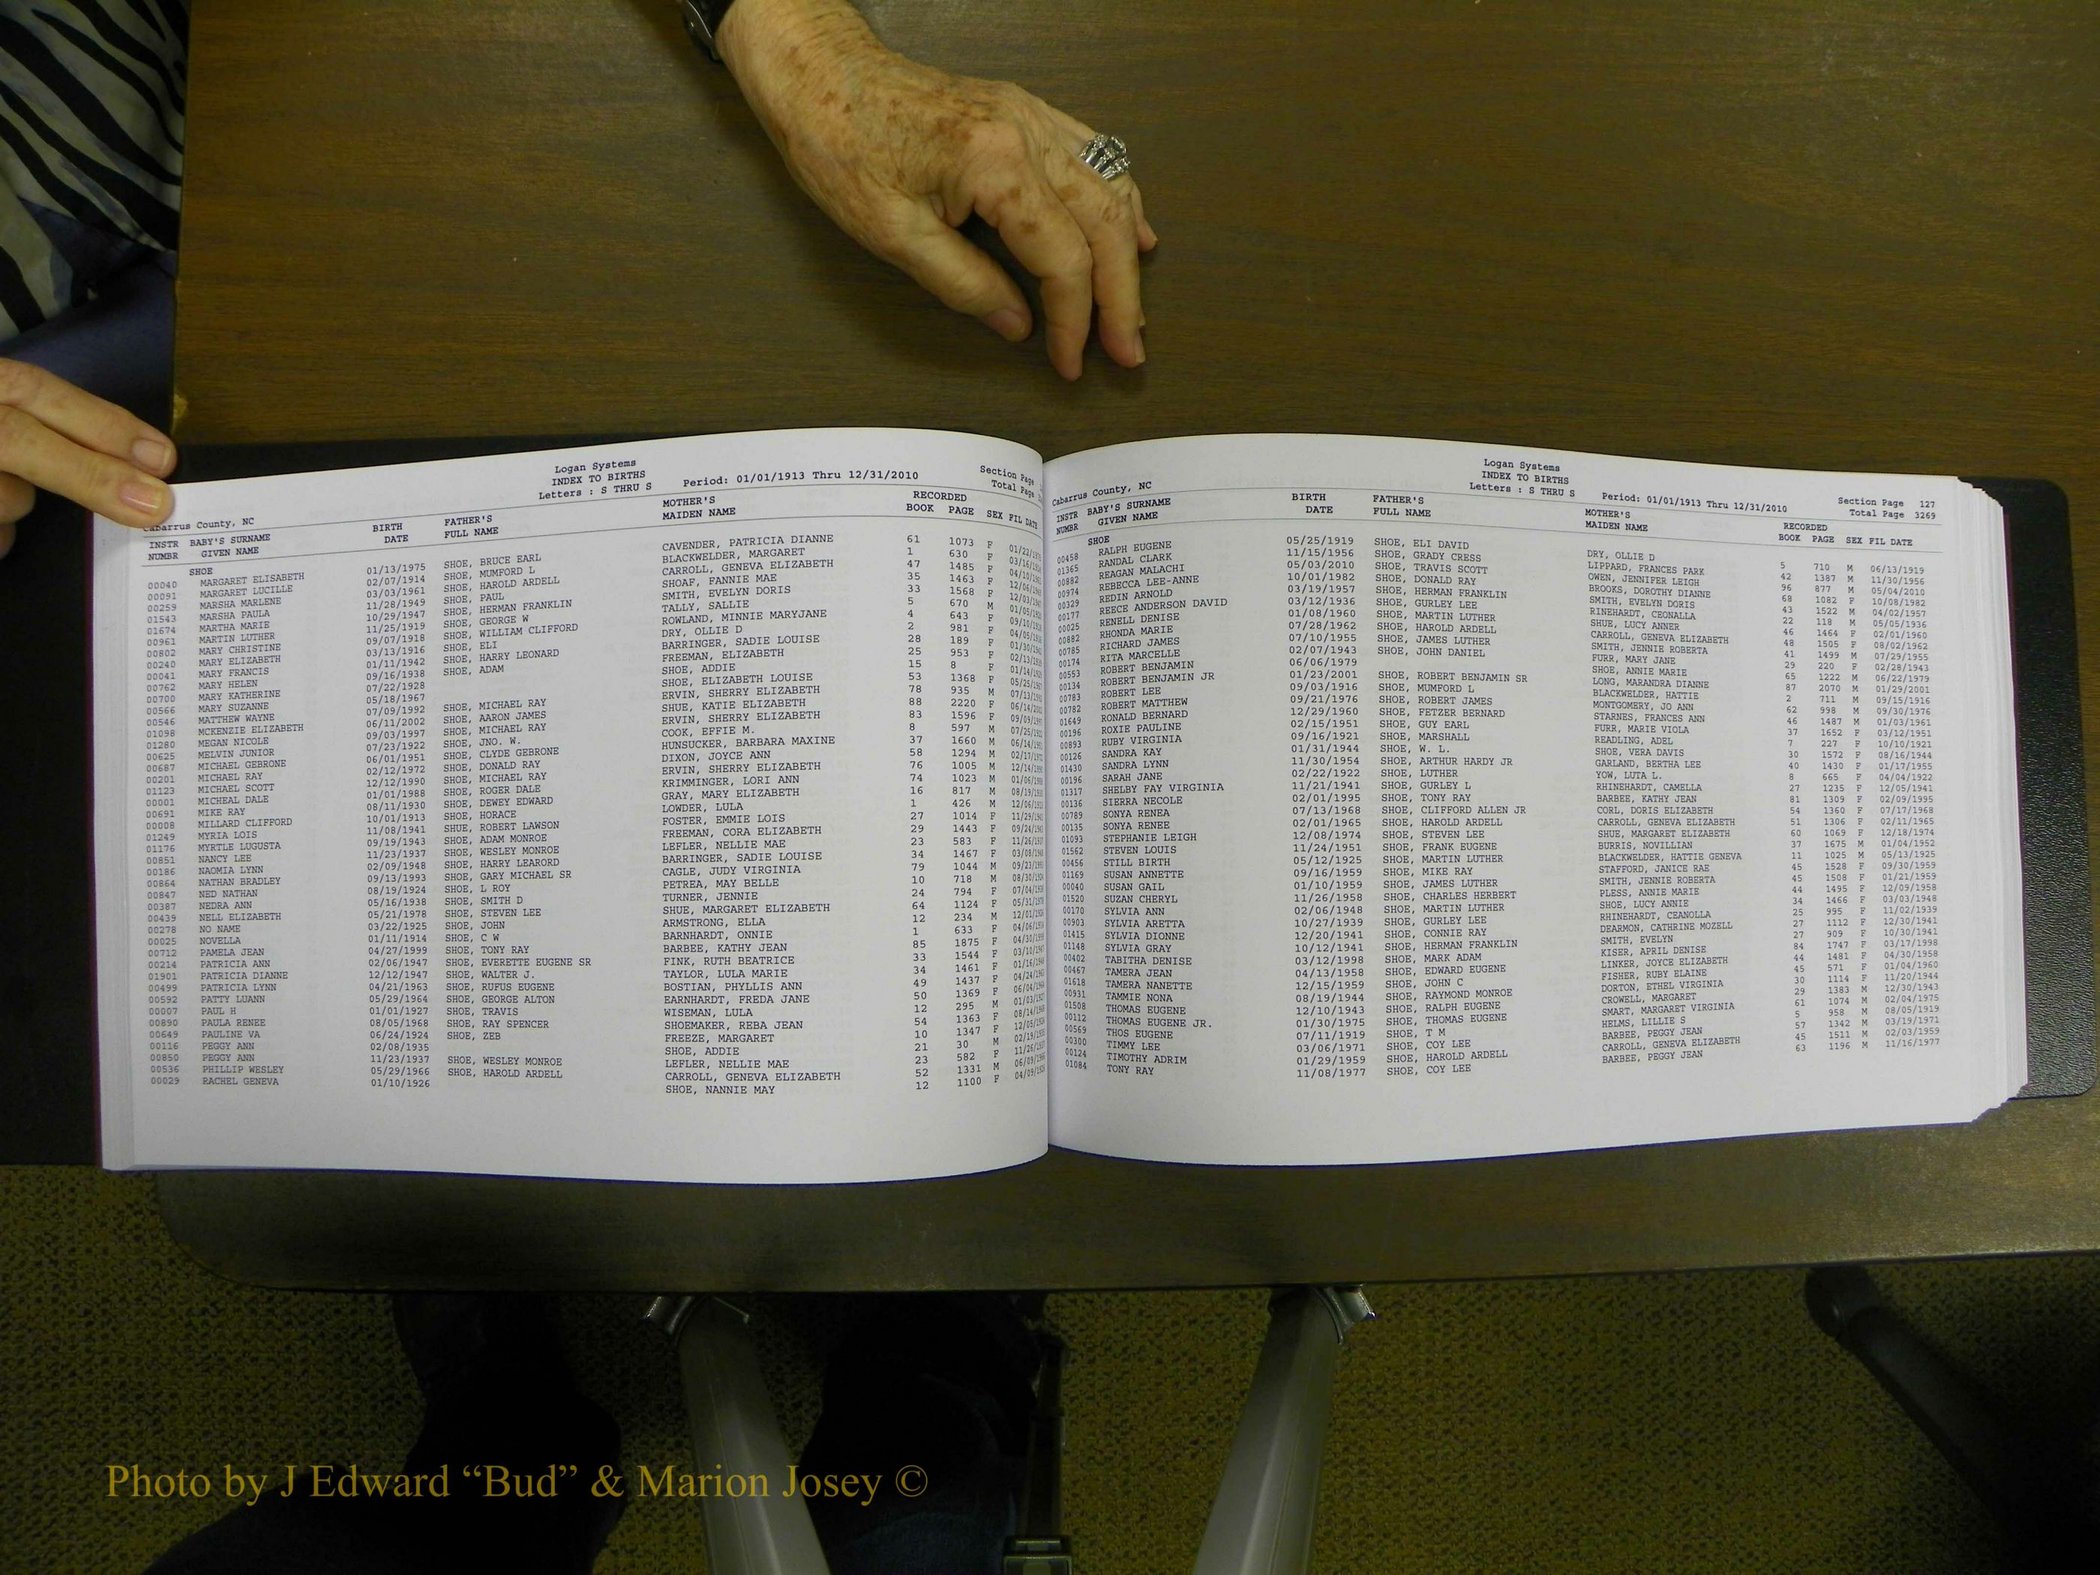 Logan Systems
INDEX TO BIRTHS
Cabarrus County, NC Letters : S THRU S Period: 01/01/1913 Thru 12/31/2010 Section Page
Total Page
INSTR BABY'S SURNAME BIRTH FATHER'S MOTHER'S RECORDED
NUMBR GIVEN NAME DATE FULL NAME MAIDEN NAME BOOK PAGE SEX FIL DATE
SHOE
00040 MARGARET ELISABETH 01/13/1975 SHOE, BRUCE EARL CAVENDER, PATRICIA DIANNE 61 1073 F
00091 MARGARET LUCILLE 02/07/1914 SHOE, MUMFORD L BLACKWELDER, MARGARET 1 630 F
00259 MARSHA MARLENE 03/03/1961 SHOE, HAROLD ARDELL CARROLL, GENEVA ELIZABETH 47 1485 F
01543 MARSHA PAULA 11/28/1949 SHOE, PAUL SHOAF, FANNIE MAE 35 1463 F
01674 MARTHA MARIE 10/29/1947 SHOE, HERMAN FRANKLIN SMITH, EVELYN DORIS 33 1568 F
00961 MARTIN LUTHER 11/25/1919 SHOE, GEORGE W TALLY, SALLIE 5 670 M
00802 MARY CHRISTINE 09/07/1918 SHOE, WILLIAM CLIFFORD ROWLAND, MINNIE MARYJANE 4 643 F
00240 MARY ELIZABETH 03/13/1916 SHOE, ELI DRY, OLLIE D 2 981 F
00041 MARY FRANCIS 01/11/1942 SHOE, HARRY LEONARD BARRINGER, SADIE LOUISE 28 189 F
00762 MARY HELEN 09/16/1938 SHOE, ADAM FREEMAN, ELIZABETH 25 953 F
00700 MARY KATHERINE 07/22/1928 SHOE, ADDIE 15 8 F
00566 MARY SUZANNE 05/18/1967 SHOE, ELIZABETH LOUISE 53 1368 F
00546 MATTHEW WAYNE 07/09/1992 SHOE, MICHAEL RAY ERVIN, SHERRY ELIZABETH 78 935 M
01098 MCKENZIE ELIZABETH 06/11/2002 SHOE, AARON JAMES SHUE, KATIE ELIZABETH 88 2220 F
01280 MEGAN NICOLE 09/03/1997 SHOE, MICHAEL RAY ERVIN, SHERRY ELIZABETH 83 1596 F
00625 MELVIN JUNIOR 07/23/1922 SHOE, JNO. W. COOK, EFFIE M. 8 597 M
00687 MICHAEL GEBRONE 06/01/1951 SHOE, CLYDE GEBRONE HUNSUCKER, BARBARA MAXINE 37 1660 M
00201 MICHAEL RAY 02/12/1972 SHOE, DONALD RAY DIXON, JOYCE ANN 58 1294 M
01123 MICHAEL SCOTT 12/12/1990 SHOE, MICHAEL RAY ERVIN, SHERRY ELIZABETH 76 1005 M
00001 MICHEAL DALE 01/01/1988 SHOE, ROGER DALE KRIMMINGER, LORI ANN 74 1023 M
00691 MIKE RAY 08/11/1930 SHOE, DEWEY EDWARD GRAY, MARY ELIZABETH 16 817 M
00008 MILLARD CLIFFORD 10/01/1913 SHOE, HORACE LOWDER, LULA 1 426 M
01249 MYRIA LOIS 11/08/1941 SHUE, ROBERT LAWSON FOSTER, EMMIE LOIS 27 1014 F
01176 MYRTLE LUGUSTA 09/19/1943 SHOE, ADAM MONROE FREEMAN, CORA ELIZABETH 29 1443 F
00851 NANCY LEE 11/23/1937 SHOE, WESLEY MONROE LEFLER, NELLIE MAE 23 583 F
00186 NAOMIA LYNN 02/09/1948 SHOE, HARRY LEARORD BARRINGER, SADIE LOUISE 34 1467 F
00864 NATHAN BRADLEY 09/13/1993 SHOE, GARY MICHAEL SR CAGLE, JUDY VIRGINIA 79 1044 M
00847 NED NATHAN 08/19/1924 SHOE, L ROY PETREA, MAY BELLE 10 718 M
00387 NEDRA ANN 05/16/1938 SHOE, SMITH D TURNER, JENNIE 24 794 F
00439 NELL ELIZABETH 05/21/1978 SHOE, STEVEN LEE SHUE, MARGARET ELIZABETH 64 1124 F
00278 NO NAME 03/22/1925 SHOE, JOHN ARMSTRONG, ELLA 12 234 M
00025 NOVELLA 01/11/1914 SHOE, C W BARNHARDT, ONNIE 1 633 F
00712 PAMELA JEAN 04/27/1999 SHOE, TONY RAY BARBEE, KATHY JEAN 85 1875 F
00214 PATRICIA ANN 02/06/1947 SHOE, EVERETTE EUGENE SR FINK, RUTH BEATRICE 33 1544 F
01901 PATRICIA DIANNE 12/12/1947 SHOE, WALTER J. TAYLOR, LULA MARIE 34 1461 F
00499 PATRICIA LYNN 04/21/1963 SHOE, RUFUS EUGENE BOSTIAN, PHYLLIS ANN 49 1437 F
00592 PATTY LUANN 05/29/1964 SHOE, GEORGE ALTON EARNHARDT, FREDA JANE 50 1369 F
00007 PAUL H 01/01/1927 SHOE, TRAVIS WISEMAN, LULA 12 295 M
00890 PAULA RENEE 08/05/1968 SHOE, RAY SPENCER SHOEMAKER, REBA JEAN 54 1363 F
00649 PAULINE VA 06/24/1924 SHOE, ZEB FREEZE, MARGARET 10 1347 F
00116 PEGGY ANN 02/08/1935 SHOE, ADDIE 21 30
00850 PEGGY ANN 11/23/1937 SHOE, WESLEY MONROE LEFLER, NELLIE MAE 23 582 F
00536 PHILLIP WESLEY 05/29/1966 SHOE, HAROLD ARDELL CARROLL, GENEVA ELIZABETH 52 1331 M
00029 RACHEL GENEVA 01/10/1926 SHOE, NANNIE MAY 12 1100 F
Logan Systems
INDEX TO BIRTHS
Cabarrus County, NC Letters : S THRU S Period: 01/01/1913 Thru 12/31/2010 Section Page 127
Total Page 3269
INSTR BABY'S SURNAME BIRTH FATHER'S MOTHER'S RECORDED
NUMBR GIVEN NAME DATE FULL NAME MAIDEN NAME BOOK PAGE SEX FIL DATE
SHOE
00458 RALPH EUGENE 05/25/1919 SHOE, ELI DAVID DRY, OLLIE D 5 710 M 06/13/1919
01365 RANDAL CLARK 11/15/1956 SHOE, GRADY CRESS LIPPARD, FRANCES PARK 42 1387 M 11/30/1956
00882 REAGAN MALACHI 05/03/2010 SHOE, TRAVIS SCOTT OWEN, JENNIFER LEIGH 96 877 M 05/04/2010
00974 REBECCA LEE-ANNE 10/01/1982 SHOE, DONALD RAY BROOKS, DOROTHY DIANNE 68 1082 F 10/08/1982
00329 REDIN ARNOLD 03/19/1957 SHOE, HERMAN FRANKLIN SMITH, EVELYN DORIS 43 1522 M 04/02/1957
00177 REECE ANDERSON DAVID 03/12/1936 SHOE, GURLEY LEE RINEHARDT, CEONALLA 22 118 M 05/05/1936
00025 RENELL DENISE 01/08/1960 SHOE, MARTIN LUTHER SHUE, LUCY ANNER 46 1464 F 02/01/1960
00882 RHONDA MARIE 07/28/1962 SHOE, HAROLD ARDELL CARROLL, GENEVA ELIZABETH 48 1505 F 08/02/1962
00785 RICHARD JAMES 07/10/1955 SHOE, JAMES LUTHER SMITH, JENNIE ROBERTA 41 1499 M 07/29/1955
00174 RITA MARCELLE 02/07/1943 SHOE, JOHN DANIEL FURR, MARY JANE 29 220 F 02/28/1943
00553 ROBERT BENJAMIN 06/06/1979 SHOE, ANNIE MARIE 65 1222 M 06/22/1979
00134 ROBERT BENJAMIN JR 01/23/2001 SHOE, ROBERT BENJAMIN SR LONG, MARANDRA DIANNE 87 2070 M 01/29/2001
00783 ROBERT LEE 09/03/1916 SHOE, MUMFORD L BLACKWELDER, HATTIE 2 711 M 09/15/1916
00782 ROBERT MATTHEW 09/21/1976 SHOE, ROBERT JAMES MONTGOMERY, JO ANN 62 998 M 09/30/1976
01649 RONALD BERNARD 12/29/1960 SHOE, FETZER BERNARD STARNES, FRANCES ANN 46 1487 M 01/03/1961
00196 ROXIE PAULINE 02/15/1951 SHOE, GUY EARL FURR, MARIE VIOLA 37 1652 F 03/12/1951
00893 RUBY VIRGINIA 09/16/1921 SHOE, MARSHALL READLING, ADEL 7 227 F 10/10/1921
00126 SANDRA KAY 01/31/1944 SHOE, W. L. SHOE, VERA DAVIS 30 1572 F 08/16/1944
01430 SANDRA LYNN 11/30/1954 SHOE, ARTHUR HARDY JR GARLAND, BERTHA LEE 40 1430 F 01/17/1955
00196 SARAH JANE 02/22/1922 SHOE, LUTHER YOW, LUTA L. 8 665 F 04/04/1922
01317 SHELBY FAY VIRGINIA 11/21/1941 SHOE, GURLEY L RHINEHARDT, CAMELLA 27 1235 F 12/05/1941
00136 SIERRA NECOLE 02/01/1995 SHOE, TONY RAY BARBEE, KATHY JEAN 81 1309 F 02/09/1995
00789 SONYA RENEA 07/13/1968 SHOE, CLIFFORD ALLEN JR CORL, DORIS ELIZABETH 54 1360 F 07/17/1968
00135 SONYA RENEE 02/01/1965 SHOE, HAROLD ARDELL CARROLL, GENEVA ELIZABETH 51 1306 F 02/11/1965
01093 STEPHANIE LEIGH 12/08/1974 SHOE, STEVEN LEE SHUE, MARGARET ELIZABETH 60 1069 F 12/18/1974
01562 STEVEN LOUIS 11/24/1951 SHOE, FRANK EUGENE BURRIS, NOVILLIAN 37 1675 M 01/04/1952
00456 STILL BIRTH 05/12/1925 SHOE, MARTIN LUTHER BLACKWELDER, HATTIE GENEVA 11 1025 M 05/13/1925
01169 SUSAN ANNETTE 09/16/1959 SHOE, MIKE RAY STAFFORD, JANICE RAE 45 1528 F 09/30/1959
00040 SUSAN GAIL 01/10/1959 SHOE, JAMES LUTHER SMITH, JENNIE ROBERTA 45 1508 F 01/21/1959
01520 SUZAN CHERYL 11/26/1958 SHOE, CHARLES HERBERT PLESS, ANNIE MARIE 44 1495 F 12/09/1958
00170 SYLVIA ANN 02/06/1948 SHOE, MARTIN LUTHER SHOE, LUCY ANNIE 34 1466 F 03/03/1948
00903 SYLVIA ARETTA 10/27/1939 SHOE, GURLEY LEE RHINEHARDT, CEANOLLA 25 995 F 11/02/1939
01415 SYLVIA DIONNE 12/20/1941 SHOE, CONNIE RAY DEARMON, CATHRINE MOZELL 27 1112 F 12/30/1941
01148 SYLVIA GRAY 10/12/1941 SHOE, HERMAN FRANKLIN SMITH, EVELYN 27 909 F 10/30/1941
00402 TABITHA DENISE 03/12/1998 SHOE, MARK ADAM KISER, APRIL DENISE 84 1747 F 03/17/1998
00467 TAMERA JEAN 04/13/1958 SHOE, EDWARD EUGENE LINKER, JOYCE ELIZABETH 44 1481 F 04/30/1958
01618 TAMERA NANETTE 12/15/1959 SHOE, JOHN C FISHER, RUBY ELAINE 45 571 F 01/04/1960
00931 TAMMIE NONA 08/19/1944 SHOE, RAYMOND MONROE DORTON, ETHEL VIRGINIA 30 1114 F 11/20/1944
01508 THOMAS EUGENE 12/10/1943 SHOE, RALPH EUGENE CROWELL, MARGARET 29 1383 M 12/30/1943
00112 THOMAS EUGENE JR. 01/30/1975 SHOE, THOMAS EUGENE SMART, MARGARET VIRGINIA 61 1074 M 02/04/1975
00569 THOS EUGENE 07/11/1919 SHOE, T M HELMS, LILLIE S 5 958 M 08/05/1919
00300 TIMMY LEE 03/06/1971 SHOE, COY LEE BARBEE, PEGGY JEAN 57 1342 M 03/19/1971
00124 TIMOTHY ADRIM 01/29/1959 SHOE, HAROLD ARDELL CARROLL, GENEVA ELIZABETH 45 1511 M 02/03/1959
01084 TONY RAY 11/08/1977 SHOE, COY LEE BARBEE, PEGGY JEAN 63 1196 M 11/16/1977
Photo by J Edward “Bud” & Marion Josey ©